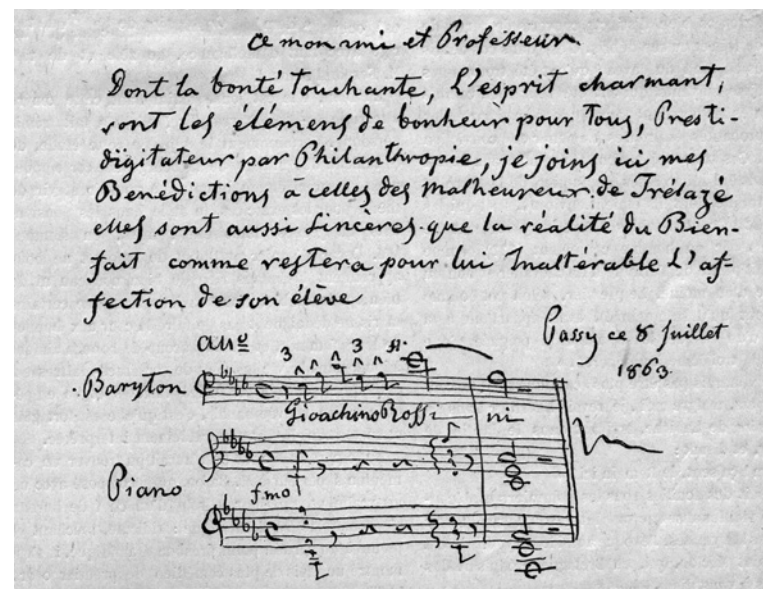 a mon ami et Professeur
Dont la bonté touchante, L'esprit charmant,
sont les élémens de bonheur pour tous, Presti-
digitateur par Philanthropie, je joins ici mes
Benédictions a celles des malheureux de Trélazé
elles sont aussi Sincères que la réalité du Bien-
fait comme restera pour lui Inaltérable L'af-
fection de son élève
Passy ce 8 Juillet
1863.
all⁰
3 3
Baryton
Gioachino Rossi ni
Piano
f.mo